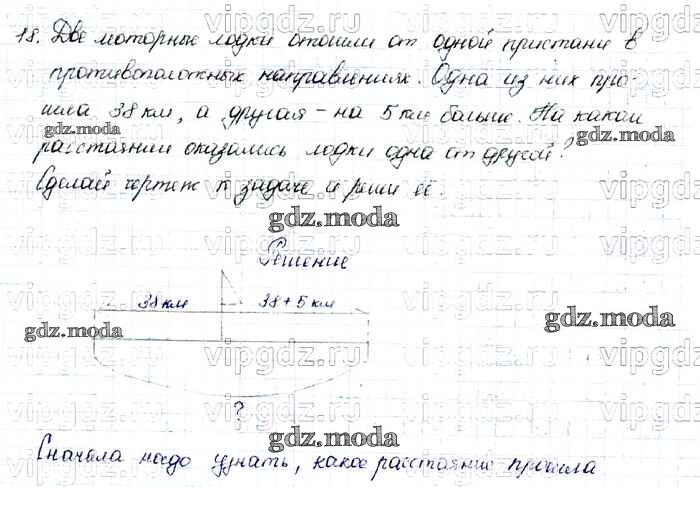 18. Две моторные лодки отошли от одной пристани в
противоположных направлениях. Одна из них про-
шла 38 км, а другая - на 5 км больше. На каком
расстоянии оказались лодки одна от другой?
Сделай чертеж к задаче и реши её.
Решение
38 км 38+5 км
?
Сначала надо узнать, какое расстояние прошла
vipgdz.ru
gdz.moda